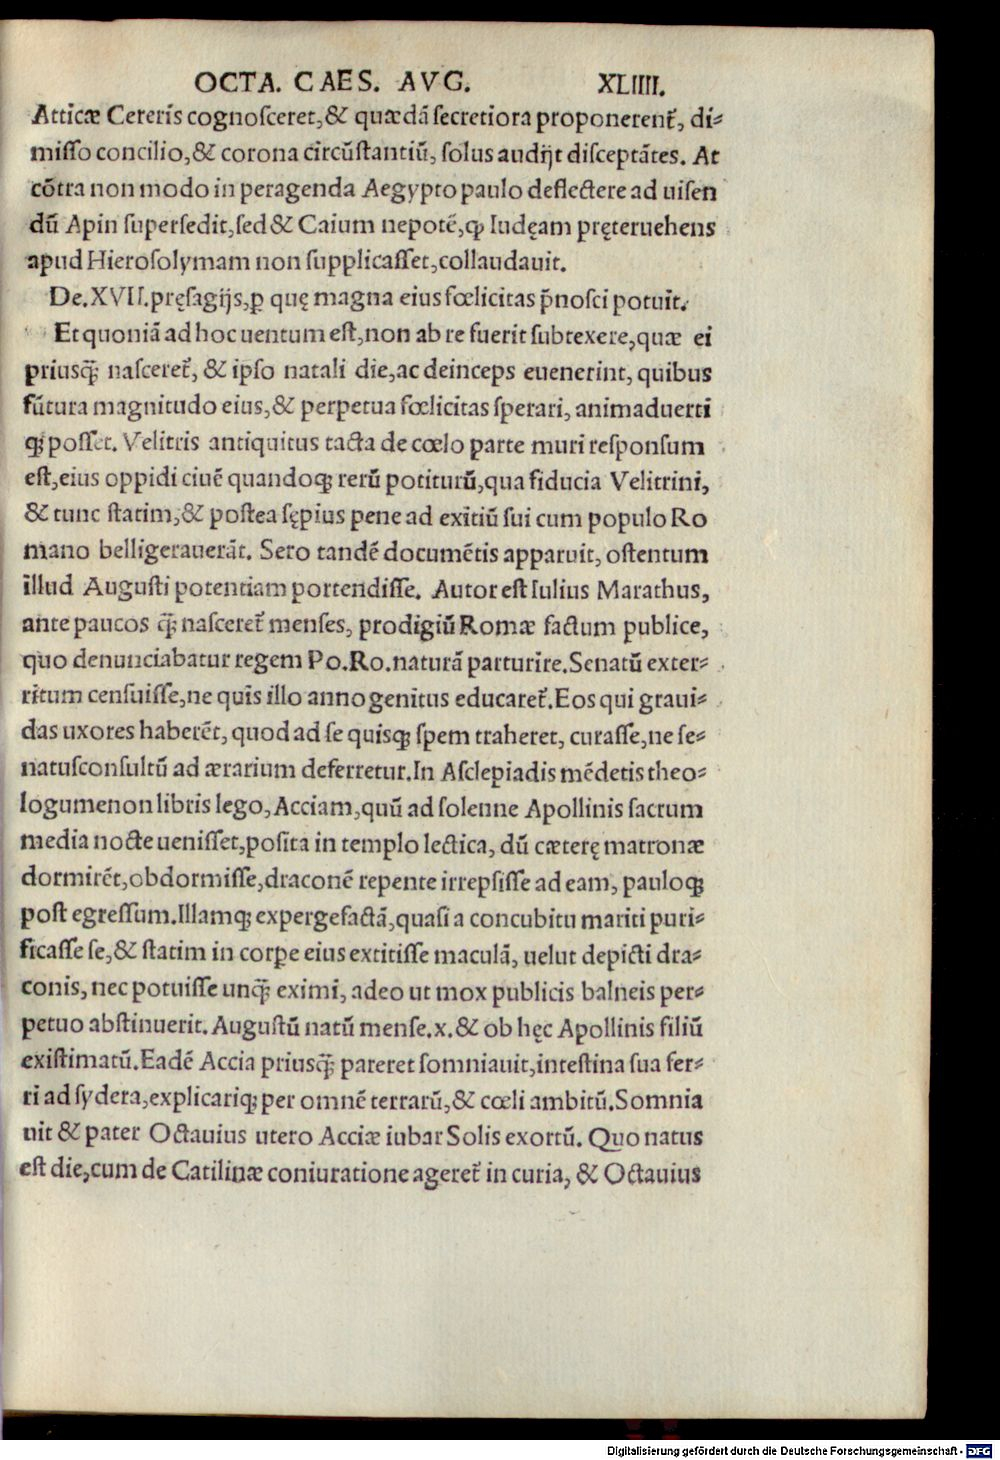 OCTA. CAES. AVG. XLIIII.
Atticæ Cereris cognoſceret,& quædã ſecretiora proponerent᷑, di⸗
miſſo concilio,& corona circũſtantiũ, ſolus audijt diſceptãtes. At
cõtra non modo in peragenda Aegypto paulo deflectere ad uiſen
dũ Apin ſuperſedit,ſed & Caium nepotẽ,ꝙ Iudęam pręteruehens
apud Hieroſolymam non ſupplicaſſet,collaudauit.
De.XVII.pręſagijs,ꝑ quę magna eius fœlicitas p̃noſci potuit.
Et quoniã ad hoc uentum eſt,non ab re fuerit ſubtexere,quæ ei
priusq̃; naſceret᷑, & ipſo natali die,ac deinceps euenerint, quibus
fũtura magnitudo eius,& perpetua fœlicitas ſperari, animaduerti
q; poſſet. Velitris antiquitus tacta de cœlo parte muri reſponſum
eſt,eius oppidi ciuẽ quandoq; rerũ potiturũ,qua fiducia Velitrini,
& tunc ſtatim,& poſtea ſępius pene ad exitiũ ſui cum populo Ro
mano belligerauerãt. Sero tandẽ documẽtis apparuit, oſtentum
illud Auguſti potentiam portendiſſe. Autor eſt Iulius Marathus,
ante paucos q̃; naſceret᷑ menſes, prodigiũ Romæ factum publice,
quo denunciabatur regem Po.Ro.naturã parturire.Senatũ exter⸗
ritum cenſuiſſe,ne quis illo anno genitus educaret᷑.Eos qui graui⸗
das uxores haberẽt, quod ad ſe quisq; ſpem traheret, curaſſe,ne ſe⸗
natusconſultũ ad ærarium deferretur.In Aſclepiadis mẽdetis theo⸗
logumenon libris lego, Acciam,quũ ad ſolenne Apollinis ſacrum
media nocte ueniſſet,poſita in templo lectica, dũ cæterę matronæ
dormirẽt,obdormiſſe,draconẽ repente irrepſiſſe ad eam, pauloq;
poſt egreſſum.Illamq; expergefactã,quaſi a concubitu mariti puri⸗
ficaſſe ſe,& ſtatim in corꝑe eius extitiſſe maculã, uelut depicti dra⸗
conis, nec potuiſſe unq̃; eximi, adeo ut mox publicis balneis per⸗
petuo abſtinuerit. Auguſtũ natũ menſe.x.& ob hęc Apollinis filiũ
exiſtimatũ.Eadẽ Accia priusq̃; pareret ſomniauit,inteſtina ſua fer⸗
ri ad ſydera,explicariq; per omnẽ terrarũ,& cœli ambitũ.Somnia
uit & pater Octauius utero Acciæ iubar Solis exortũ. Quo natus
eſt die,cum de Catilinæ coniuratione ageret᷑ in curia, & Octauius
Digitalisierung gefördert durch die Deutsche Forschungsgemeinschaft - DFG